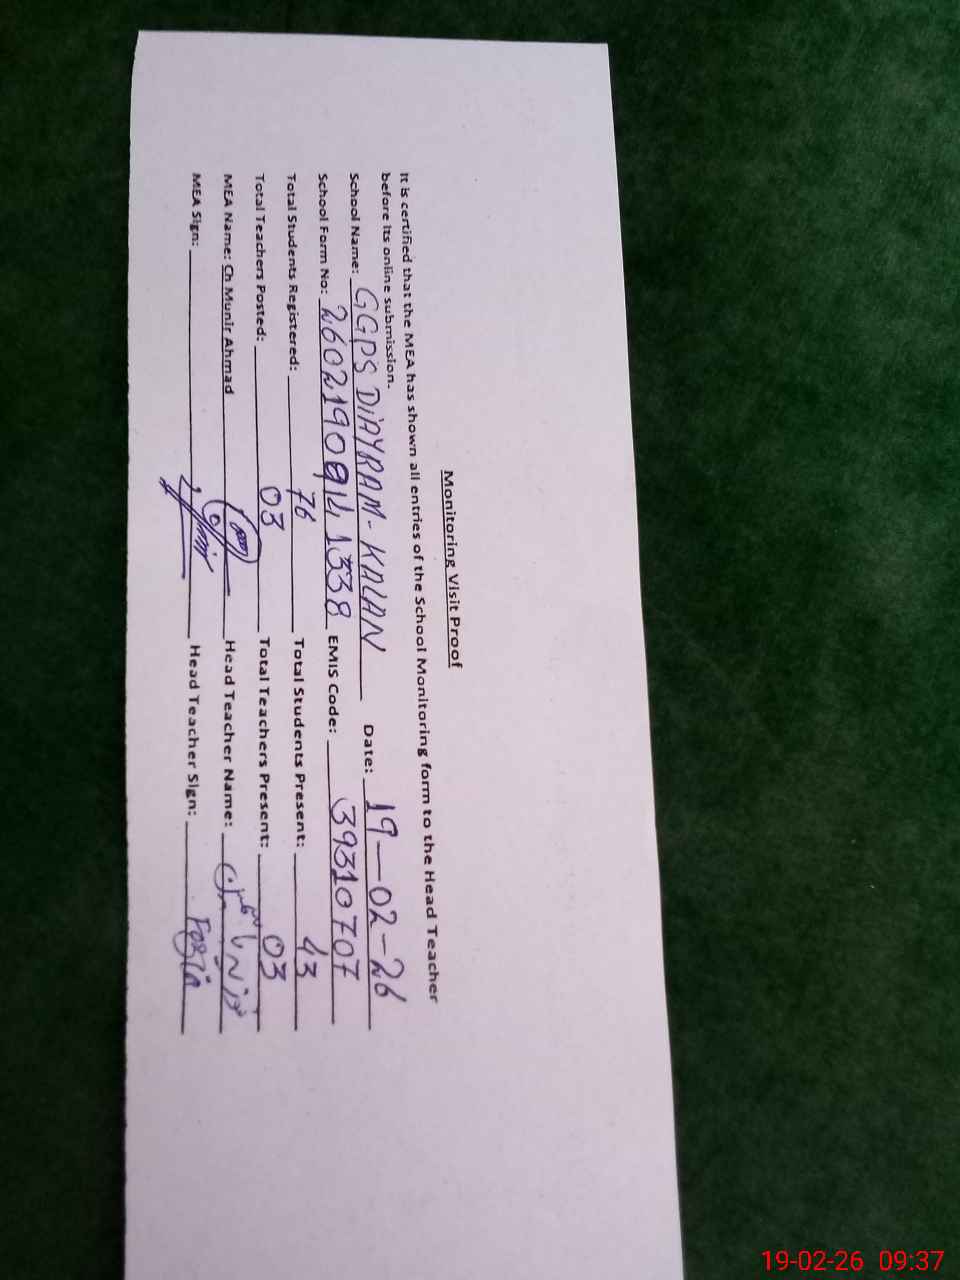 Monitoring Visit Proof
It is certified that the MEA has shown all entries of the School Monitoring form to the Head Teacher
before its online submission.
School Name: GGPS DIAYRAM-KALAN Date: 19-02-26
School Form No: EMIS Code: 39310707
Total Students Registered: 76 Total Students Present:
Total Teachers Posted: 03 Total Teachers Present: 03
MEA Name: Ch Munir Ahmad Head Teacher Name:
MEA Sign: Head Teacher Sign:
19-02-26 09:37